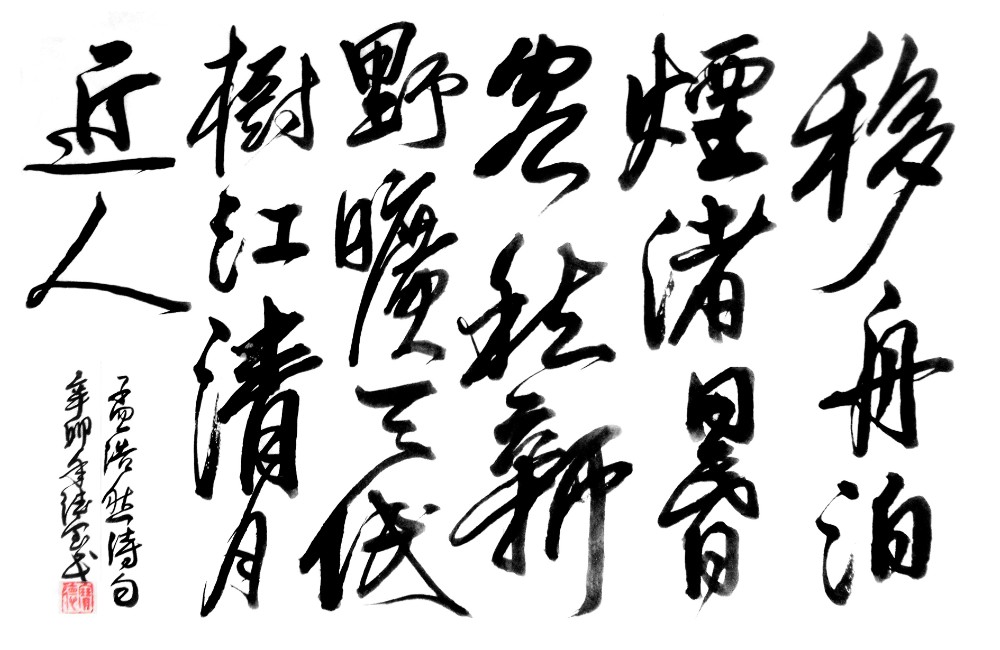 移舟泊
煙渚日暮
客愁新
野曠天低
樹江清月
近人
孟浩然詩句
辛卯年德宝书